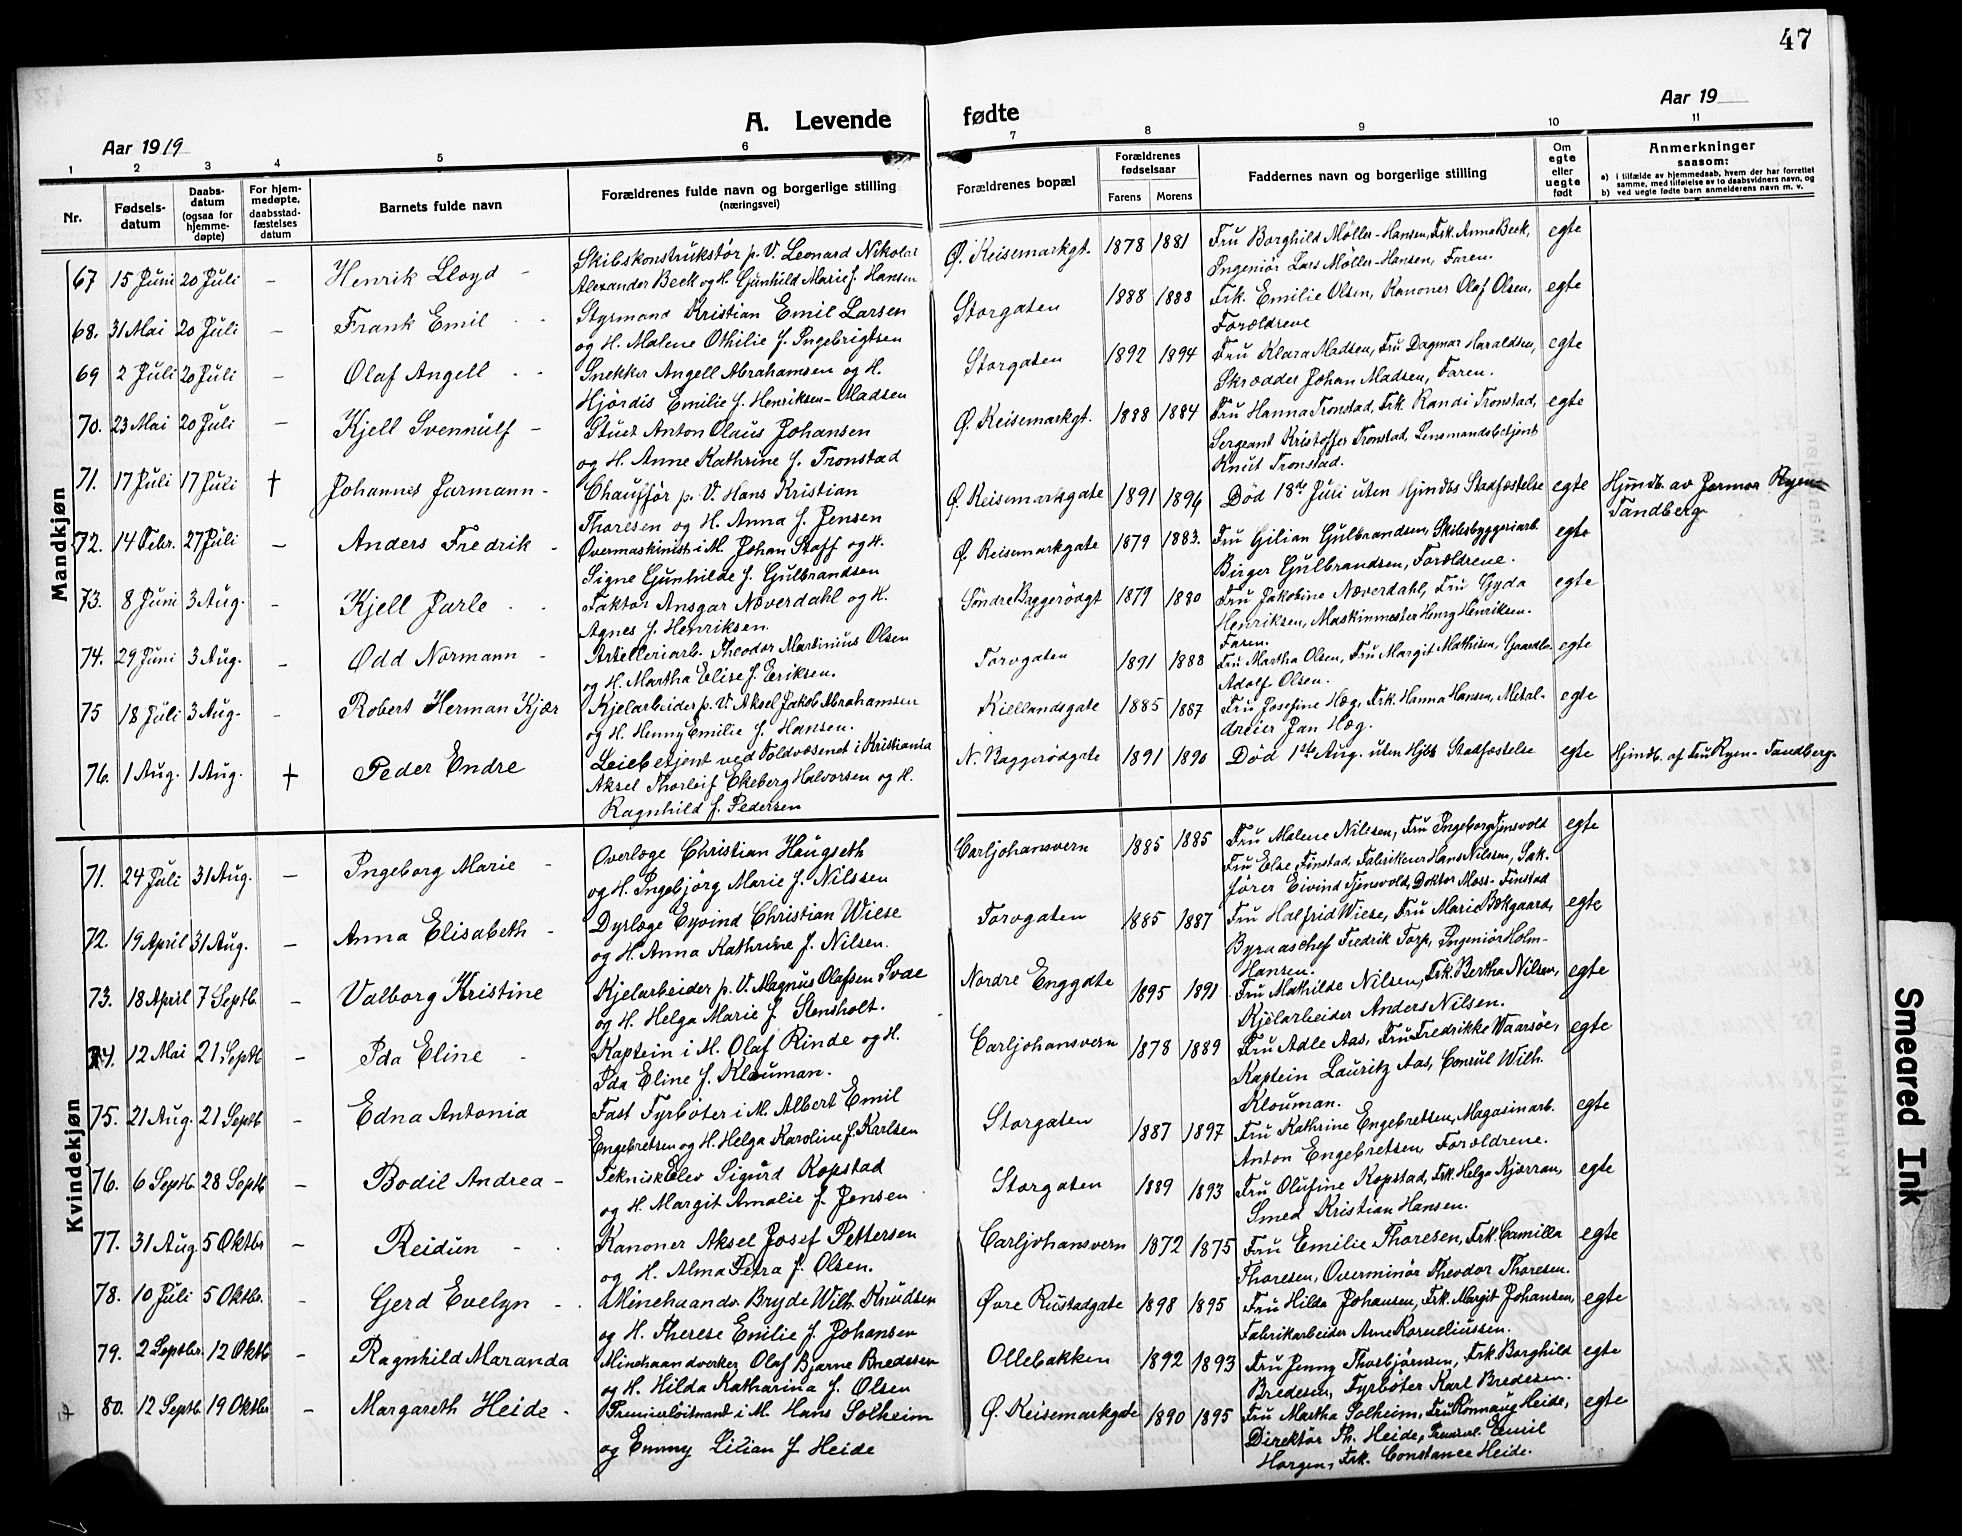 47
A. Levende fødte
Aar 1919
Aar 19
1 2 3 4 5 6 7 8 9 10 11
Nr.
Fødsels-datum
Daabs-datum (ogsaa for hjemme-døpte)
For hjem-medøpte, daabsstad-fæstelses datum
Barnets fulde navn
Forældrenes fulde navn og borgerlige stilling (næringsvei)
Forældrenes bopæl
Forældrenes fødselsaar
Farens Morens
Faddernes navn og borgerlige stilling
Om egte eller uegte født
Anmerkninger saasom:
a) i tilfælde av hjemmedaab, hvem der har forrettet samme, med tilføielse av to daabsvidners navn, og
b) ved uegte fødte barn anmelderens navn m. v.
Mandkjøn
67 15 Juni 20 Juli - Henrik Lloyd - Skibskonstruktør p. V. Leonard Nikolai
Alexander Beck og H. Gunhild Marie f. Hansen
Ø. Keisemarkgt. 1878 1881 Fru Borghild Møller-Hansen, Frk. Anna Beck, egte
Ingeniør Lars Møller-Hansen, Faren.
68. 31 Mai 20 Juli - Frank Emil - Styrmand Kristian Emil Larsen
og H. Malene Othilie f. Ingebrigtsen
Storgaten 1888 1888 Frk. Emilie Olsen, Kanoner Olaf Olsen, egte
Forældrene
69 2 Juli 20 Juli - Olaf Angell - Snekker Angell Abrahamsen og H.
Hjördis Emilie f. Henriksen-Madsen
Storgaten 1892 1894 Fru Klara Madsen, Fru Dagmar Haraldsen, egte
Skrædder Johan Madsen, Faren.
70. 23 Mai 20 Juli - Kjell Svennulf - Stuct Anton Olaus Johansen
og H. Anne Kathrine f. Tronstad
Ø. Keisemarkgt. 1888 1884 Fru Hanna Tronstad, Frk. Randi Tronstad, egte
Sergeant Kristoffer Tronstad, Lensmandsbetjent
Knut Tronstad.
71. 17 Juli 17 Juli † Johannes Jarmann - Chaufför p. V. Hans Kristian
Thoresen og H. Anna f. Jensen
Ø. Keisemarkgate 1891 1896 Död 18de Juli uten Hjmdbs Stadfæstelse egte Hjmdb. av Jormor Ryen
Tandberg
72. 14 Febr. 27 Juli - Anders Fredrik - Overmaskinist i M. Johan Staff og H.
Signe Gunhilde f. Gulbrandsen
Ø. Keisemarkgate 1879 1883. Fru Gilian Gulbrandsen, Skibsbyggeriarb. egte
Birger Gulbrandsen, Forældrene.
73. 8 Juni 3 Aug. - Kjell Jarle - Faktor Ansgar Næverdahl og H.
Agnes f. Henriksen.
Söndre Baggerödgt 1879 1880 Fru Jakobine Næverdahl, Fru Gyda egte
Henriksen, Maskinmester Henry Henriksen.
Faren.
74. 29 Juni 3 Aug. - Odd Normann - Artilleriarb. Theodor Martinius Olsen
og H. Martha Elise f. Eriksen.
Torvgaten 1891 1888 Fru Martha Olsen, Fru Margit Mathisen, Gaardbr. egte
Adolf Olsen.
75 18 Juli 3 Aug. - Robert Herman Kjær Kjelarbeider p. V. Aksel Jakob Abrahamsen
og H. Henny Emilie f. Hansen.
Kiellandsgate 1885 1887 Fru Josefine Hæg, Frk. Hanna Hansen, Metal- egte
dreier Jan Hæg.
76. 1 Aug. 1 Aug. † Peder Endre Leiebetjent ved Toldvæsenet i Kristiania
Aksel Thorleif Ekeberg Halvorsen og H.
Ragnhild f. Pedersen
N. Baggerödgate 1891 1890 Död 1ste Aug. uten Hjbs Stadfæstelse egte Hjmdb. af Fru Ryen-Tandberg.
Kvindekjøn
71. 24 Juli 31 Aug. - Ingeborg Marie - Overlæge Christian Haugseth
og H. Ingebjörg Marie f. Nilssen
Carljohansvern 1885 1885 Fru Malene Nilssen, Fru Ingeborg Tjensvold egte
Fru Else Finstad, Fabrikeur Hans Nilssen, Sak-
förer Eivind Tjensvold, Doktor Moss-Finstad
72. 19 April 31 Aug. - Anna Elisabeth - Dyrlæge Eyvind Christian Wiese
og H. Anna Kathrine f. Nilsen.
Torvgaten 1885 1887 Fru Halfrid Wiese, Fru Marie Bekgaard, egte
Byraaschef Fredrik Torp, Ingeniör Holm-
Hansen.
73. 18 April 7 Septb. - Valborg Kristine Kjelarbeider p. V. Magnus Olafsen Svae
og H. Helga Marie f. Stensholt.
Nordre Enggate 1895 1891 Fru Mathilde Nilsen, Frk. Bertha Nilsen, egte
Kjelarbeider Anders Nilsen.
74. 12 Mai 21 Septb - Ida Eline - Kaptein i M. Olaf Rinde og H.
Ida Eline f. Klouman.
Carljohansvern 1878 1889 Fru Adle Aas, Fru Fredrikke Waarsöe, egte
Kaptein Lauritz Aas, Consul Wilh.
Klouman.
75. 21 Aug. 21 Septb - Edna Antonia Fast Fyrböter i M. Albert Emil
Engebretsen og H. Helga Karoline f. Karlsen
Storgaten 1887 1897 Fru Kathrine Engebretsen, Magasinarb. egte
Anton Engebretsen, Forældrene.
76. 6 Septb. 28 Septb - Bodil Andrea - Teknisk Elev Sigurd Kopstad
og H. Margit Amalie f. Jensen
Storgaten 1889 1893 Fru Olufine Kopstad, Frk. Helga Kjærran, egte
Smed Kristian Hansen.
77. 31 Aug. 5 Oktbr - Reidun - Kanoner Aksel Josef Pettersen
og H. Alma Petra f. Olsen.
Carljohansvern 1872 1875 Fru Emilie Thoresen, Frk. Camilla egte
Thoresen, Overminör Theodor Thoresen.
78. 10 Juli 5 Oktbr. - Gerd Evelyn - Minehaandv. Bryde Wilh. Knudsen
og H. Therese Emilie f. Johansen
Øvre Rustadgate 1898 1895 Fru Hilda Johansen, Frk. Margit Johansen, egte
Fabrikarbeider Arne Korneliussen.
79. 2 Septbr. 12 Oktb - Ragnhild Maranda Minehaandverker Olaf Bjarne Bredesen
og H. Hilda Katharina f. Olsen
Ollebakken 1892 1893 Fru Jenny Thorbjørnsen, Frk. Borghild egte
Bredesen, Fyrböter Karl Bredesen.
80. 12 Septb. 19 Oktbr - Margareth Heide - Premierlöitnant i M. Hans Solheim
og Emmy Lilian f Heide
Ø. Keisemarkgate 1890 1895 Fru Martha Solheim, Fru Rönnaug Heide, egte
Direktör Th. Heide, Emil
Horgen, Frk. Constance Heide.
Smeared Ink